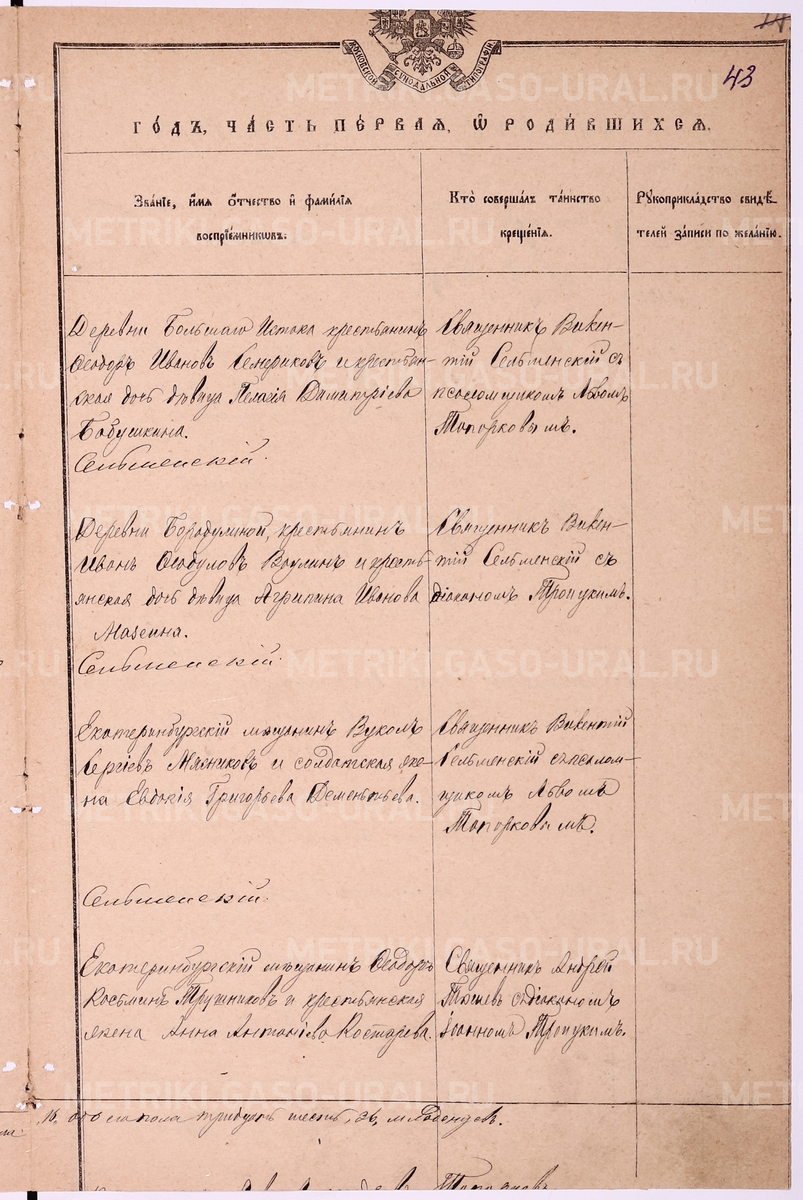 МОСКОВСКОЙ СУНОДАЛЬНОЙ ТИПОГРАФІИ
43
ГОДЪ, ЧАСТЬ ПЕРВАЯ, Ѡ РОДИВШИХСЯ.
Званіе, имя отчество и фамилія воспріемниковъ.
Кто совершалъ таинство крещенія.
Рукоприкладство свидѣтелей записи по желанію.
Деревни Большаго Истока крестьянинъ
Ѳеодоръ Ивановъ Семериковъ и крестьян-
ская дочь дѣвица Пелагія Димитріева
Бабушкина.
Сельменскій.
Священникъ Викен-
тій Сельменскій съ
псаломщикомъ Львомъ
Топорковымъ.
Деревни Бородулиной, крестьянинъ
Иванъ Ваулинъ и кресть-
янская дочь дѣвица Агрипина Иванова
Мазеина.
Сельменскій.
Священникъ Викен-
тій Сельменскій съ
діакономъ Троицкимъ.
Екатеринбургскій мѣщанинъ Вуколъ
Сергіевъ Мясниковъ и солдатская же-
на Евдокія Григорьева Дементьева.
Сельменскій.
Священникъ Викентій
Сельменскій съ псалом-
щикомъ Львомъ
Топорковымъ.
Екатеринбургскій мѣщанинъ Ѳеодоръ
Косьминъ Трушниковъ и крестьянская
жена Анна Антоніева Костарева.
Священникъ Андрей
съ діакономъ
Іоанномъ Троицкимъ.
обоего пола тридцать шесть, 36, младенцевъ.
METRIKI.GASO-URAL.RU